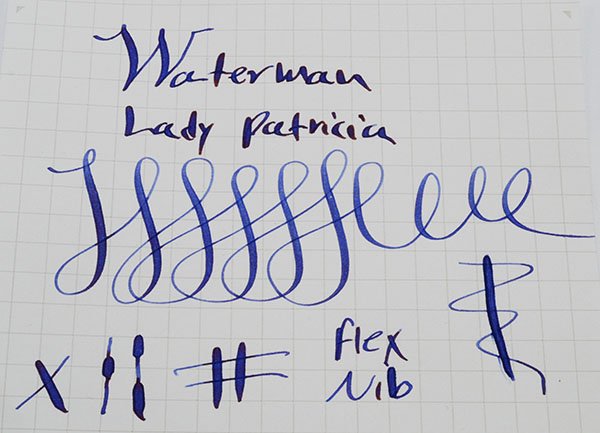 Waterman
Lady Patricia
Flex
Nib